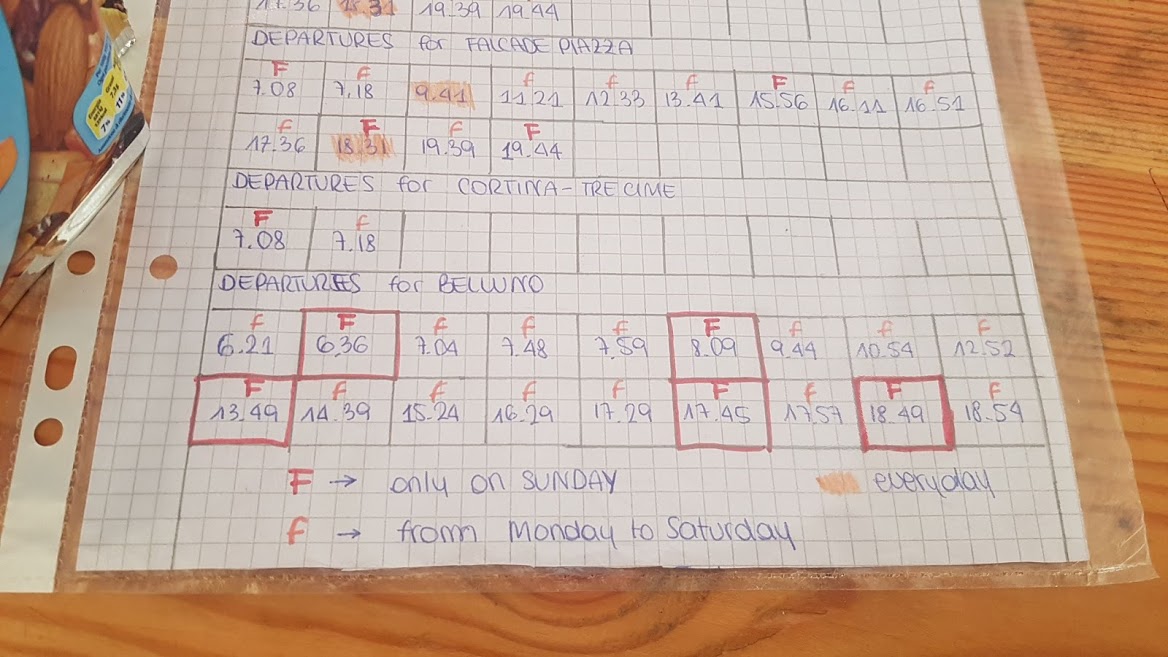 17.36 18.31 19.39 19.44
DEPARTURES for FALCADE PIAZZA
F f f f f F f f
7.08 7.18 9.41 11.21 12.33 13.41 15.56 16.11 16.51
f F f F
17.36 18.31 19.39 19.44
DEPARTURES for CORTINA-TRE CIME
F f
7.08 7.18
DEPARTURES for BELLUNO
f F f f f F f f f
6.21 6.36 7.04 7.48 7.59 8.09 9.44 10.54 12.52
F f f f f F f F f
13.49 14.39 15.24 16.29 17.29 17.45 17.57 18.49 18.54
F → only on SUNDAY everyday
f → from Monday to Saturday